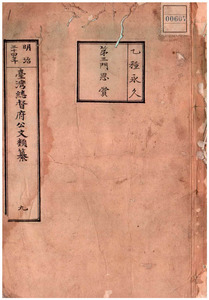 乙種永久
第三門 恩賞
明治
三十四年
臺灣總督府公文類纂 九